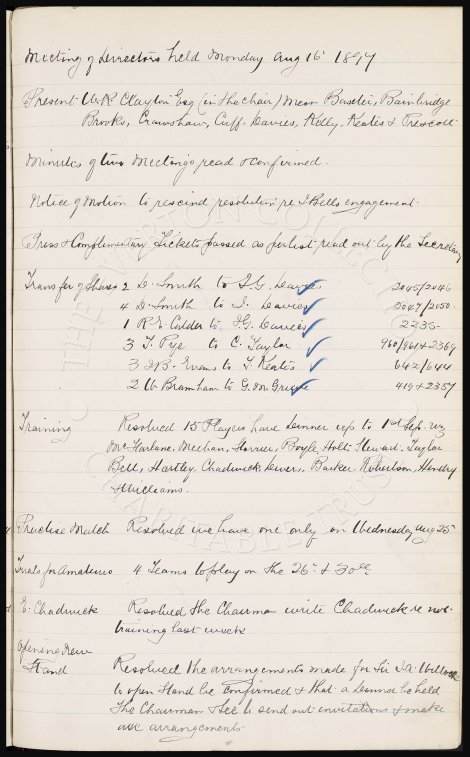 Meeting of Directors held Monday Aug 16th 1897
Present W.R. Clayton Esq (in the chair) Messrs Baxter, Bainbridge
Brooks, Crawshaw, Cuff, Davies, Kelly, Keates & Prescott
Minutes of two Meetings read & confirmed.
Notice of Motion to rescind resolution re J Bells engagement.
Press & Complimentary Tickets passed as per list read out by the Secretary
Transfer of Shares 2 D. Smith to J.G. Davies 2045/2046
4 D. Smith to J. Davies 2047/2050
1 R.E. Calder to J.G. Davies 2235
3 J. Pye to C. Taylor 960/961 & 2369
3 Evans to J. Keates 642/644
2 W Bramham to G. McGregor 419 & 2357
Training Resolved 15 Players have dinner up to 1st Sep. viz
McFarlane, Meehan, Storrier, Boyle, Holt, Stewart, Taylor
Bell, Hartley, Chadwick, Divers, Barker, Robertson, Hendry
& Williams.
Practise Match Resolved we have one only on Wednesday Aug 25th
Trials for Amateurs 4 Teams to play on the 26th & 30th
E. Chadwick Resolved the Chairman write Chadwick re not
training last week
Opening New
Stand Resolved the arrangements made for Sir Willox
to open Stand be confirmed & that a dinner be held
The Chairman & Sec to send out invitations & make
all arrangements
THE EVERTON COLLECTION
CHARITABLE TRUST